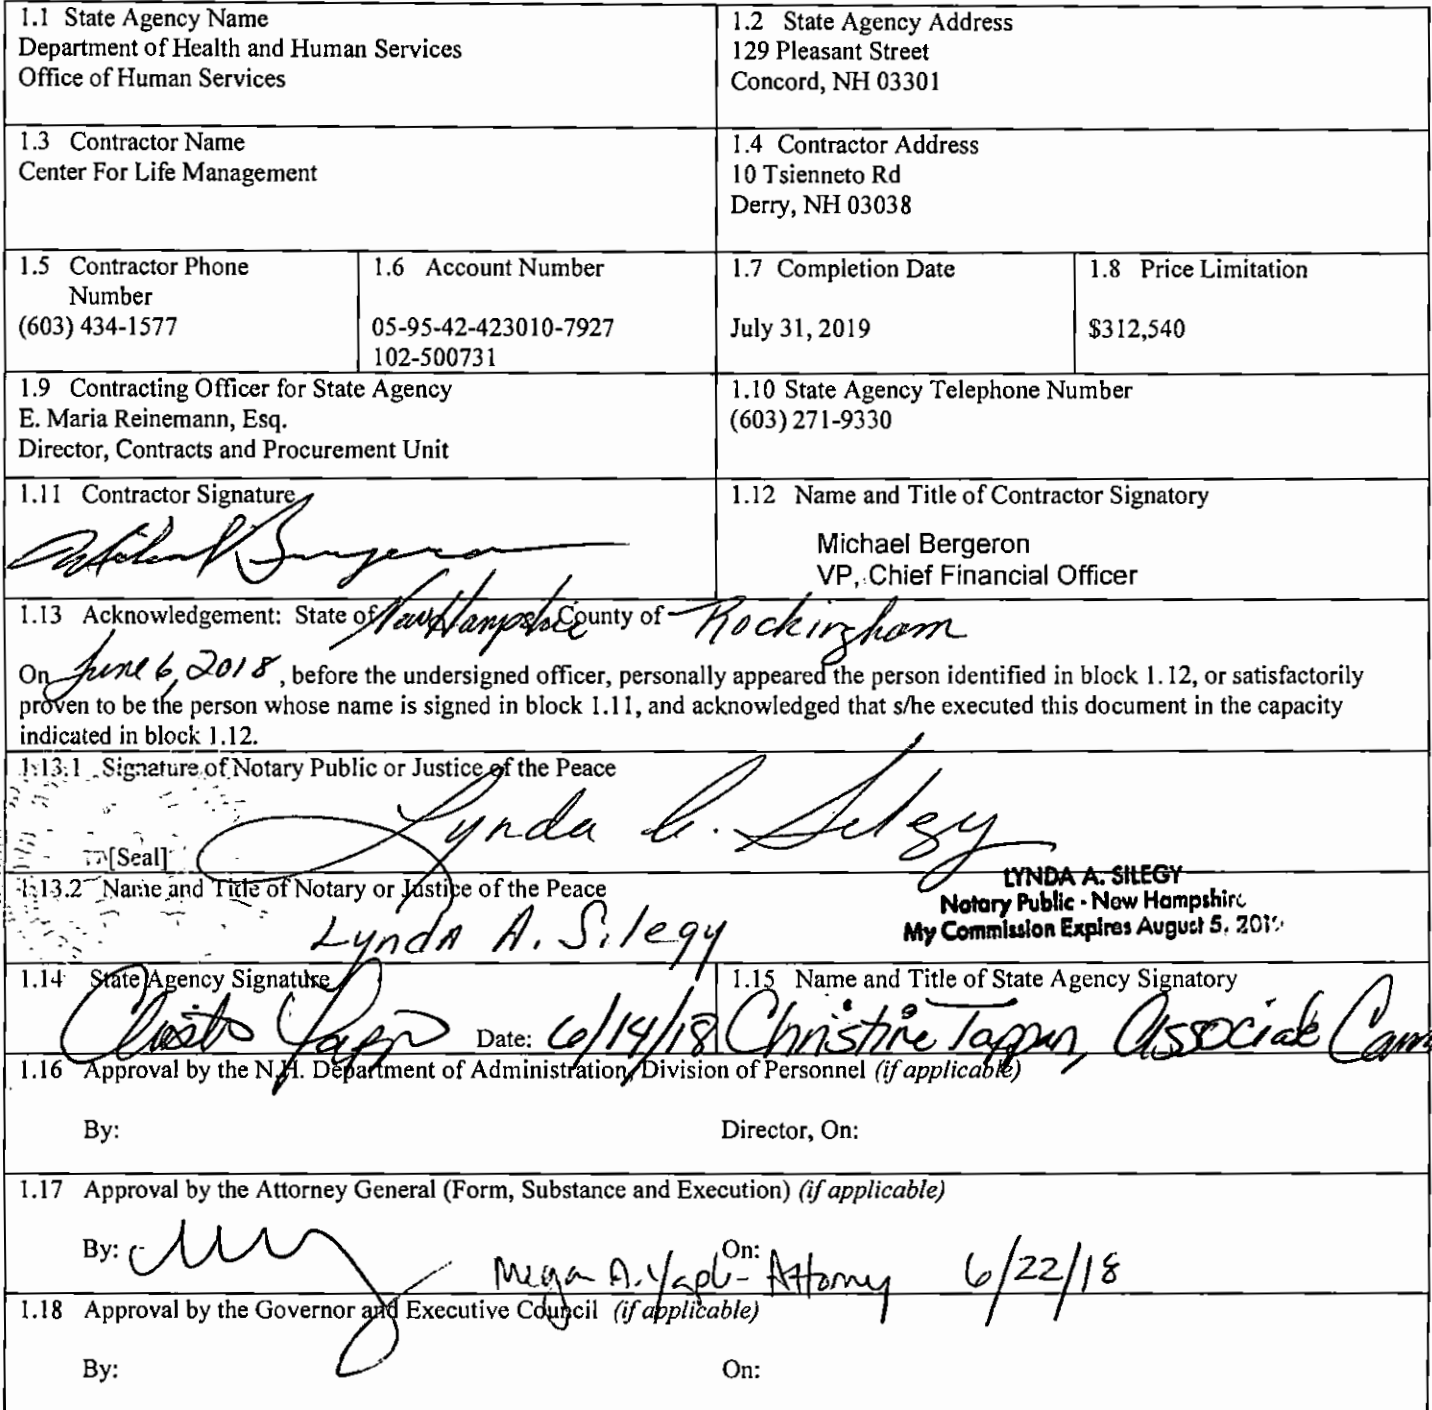 1.1 State Agency Name
Department of Health and Human Services
Office of Human Services
1.2 State Agency Address
129 Pleasant Street
Concord, NH 03301
1.3 Contractor Name
Center For Life Management
1.4 Contractor Address
10 Tsienneto Rd
Derry, NH 03038
1.5 Contractor Phone
Number
(603) 434-1577
1.6 Account Number
05-95-42-423010-7927
102-500731
1.7 Completion Date
July 31, 2019
1.8 Price Limitation
$312,540
1.9 Contracting Officer for State Agency
E. Maria Reinemann, Esq.
Director, Contracts and Procurement Unit
1.10 State Agency Telephone Number
(603) 271-9330
1.11 Contractor Signature
Michael Bergeron
1.12 Name and Title of Contractor Signatory
Michael Bergeron
VP, Chief Financial Officer
1.13 Acknowledgement: State of New Hampshire County of Rockingham
On June 6, 2018, before the undersigned officer, personally appeared the person identified in block 1.12, or satisfactorily
proven to be the person whose name is signed in block 1.11, and acknowledged that s/he executed this document in the capacity
indicated in block 1.12.
1.13.1 Signature of Notary Public or Justice of the Peace
Lynda A. Silegy
[Seal]
LYNDA A. SILEGY
Notary Public - New Hampshire
My Commission Expires August 5,
1.13.2 Name and Title of Notary or Justice of the Peace
Lynda A. Silegy
1.14 State Agency Signature
Date: 6/14/18
1.15 Name and Title of State Agency Signatory
Christine Tappan, Associate Comm
1.16 Approval by the N.H. Department of Administration, Division of Personnel (if applicable)
By:
Director, On:
1.17 Approval by the Attorney General (Form, Substance and Execution) (if applicable)
By:
On:
Megan A. - Attorney 6/22/18
1.18 Approval by the Governor and Executive Council (if applicable)
By:
On: